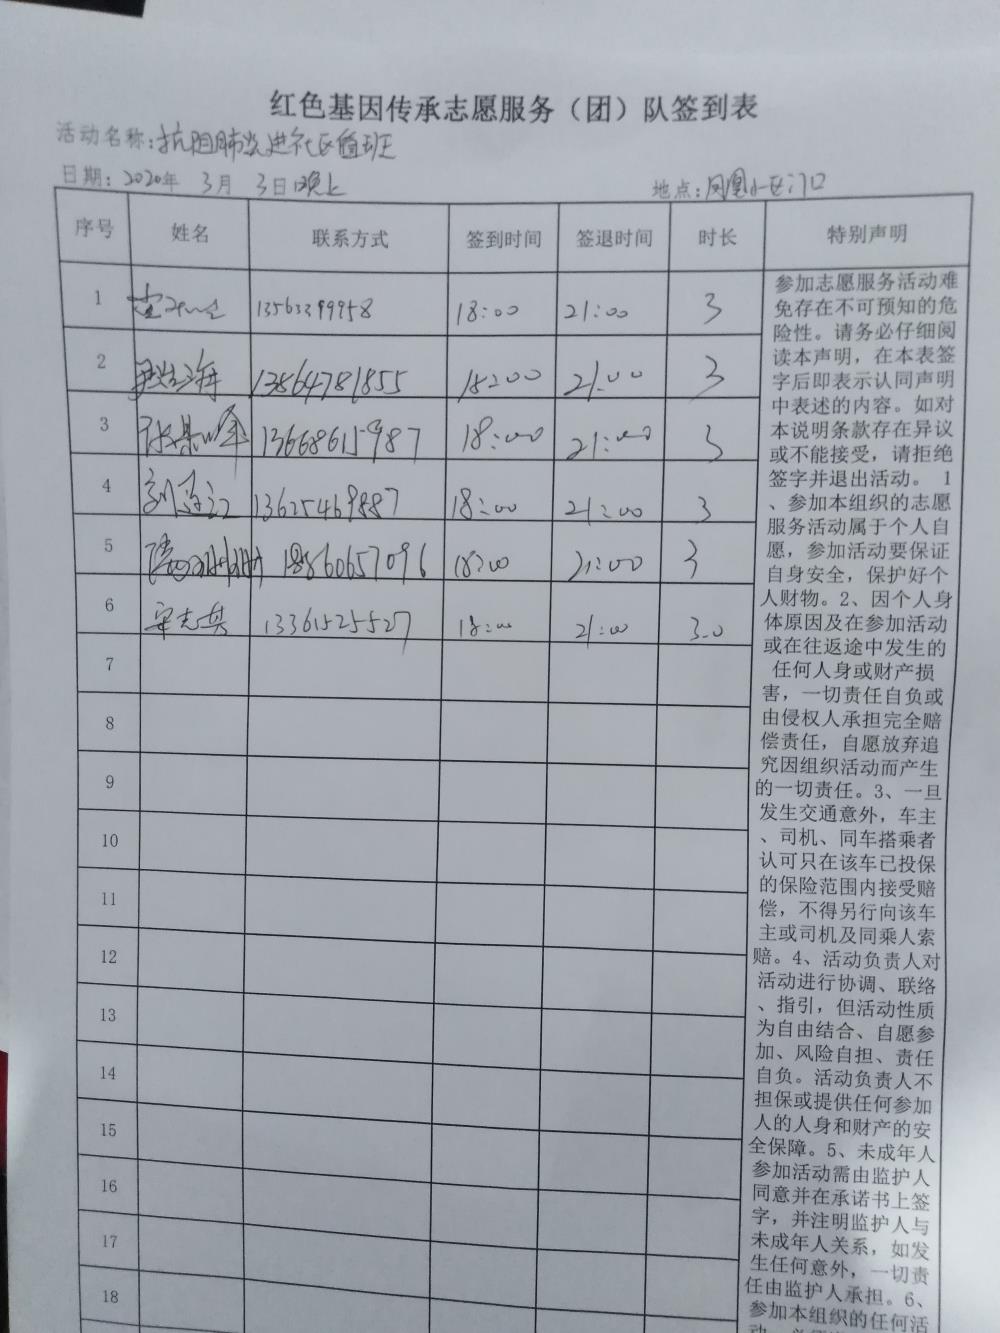 红色基因传承志愿服务（团）队签到表
活动名称:抗阻肺炎进社区值班
日期: 2020年 3月 3日晚上 地点:凤凰小区门口
序号 姓名 联系方式 签到时间 签退时间 时长 特别声明
1 18:00 21:00 3
2 13864781855 18:00 21:00 3
3 13668615987 18:00 21:00 3
4 13625469887 18:00 21:00 3
5 18860657096 18:00 21:00 3
6 宋志兵 13361525527 18:00 21:00 3.0
7
8
9
10
11
12
13
14
15
16
17
18
参加志愿服务活动难
免存在不可预知的危
险性。请务必仔细阅
读本声明，在本表签
字后即表示认同声明
中表述的内容。如对
本说明条款存在异议
或不能接受，请拒绝
签字并退出活动。 1
、参加本组织的志愿
服务活动属于个人自
愿，参加活动要保证
自身安全，保护好个
人财物。2、因个人身
体原因及在参加活动
或在往返途中发生的
任何人身或财产损
害，一切责任自负或
由侵权人承担完全赔
偿责任，自愿放弃追
究因组织活动而产生
的一切责任。3、一旦
发生交通意外，车主
、司机、同车搭乘者
认可只在该车已投保
的保险范围内接受赔
偿，不得另行向该车
主或司机及同乘人索
赔。4、活动负责人对
活动进行协调、联络
、指引，但活动性质
为自由结合、自愿参
加、风险自担、责任
自负。活动负责人不
担保或提供任何参加
人的人身和财产的安
全保障。5、未成年人
参加活动需由监护人
同意并在承诺书上签
字，并注明监护人与
未成年人关系，如发
生任何意外，一切责
任由监护人承担。6、
参加本组织的任何活